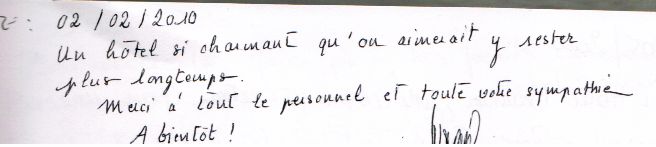 02/02/2010
Un hôtel si charmant qu'on aimerait y rester
plus longtemps.
Merci à tout le personnel et toute votre sympathie
A bientôt !